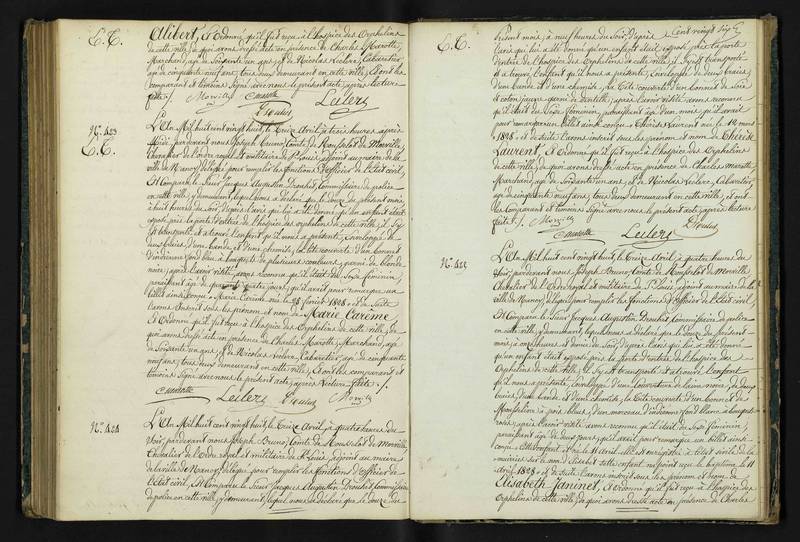 E.T.
Alibert, et Ordonné qu'il fut reçu à l'hospice des Orphelins
de cette ville, de quoi avons dressé acte en présence de Charles Marotte,
Marchand, âgé de Soixante un ans, et de Nicolas Leclere, Cabaretier,
âgé de cinquante neuf ans, tous deux demeurant en cette ville, et ont les
comparant et témoins Signé avec nous le présent acte, après lecture
faite.
Marotte Leclerc
N.° 423
E.T.
L'An Mil huit cent vingt huit, le Treize Avril, à trois heures après
Midi, pardevant nous Joseph Bruno, Comte de
Chevalier de l'ordre royal et militaire de St Louis, adjoint au maire de la
ville de Nancy, délégué pour remplir les fonctions d'officier de l'Etat civil,
Est Comparu le Sieur Jacques Augustin Commissaire de police
en cette ville, y demeurant, lequel nous a déclaré que le Douze du présent mois
à huit heures du Soir, d'après l'avis qui lui a été donné qu'un enfant était
exposé près la porte d'entrée de l'hospice des orphelins de cette ville, il s'y
est transporté et a trouvé l'enfant qu'il nous a présenté, Enveloppé de
deux braies, d'une bande et d'une chemise, la tête couverte d'un bonnet
d'indienne fond bleu à bouquets de plusieurs couleurs, garni de blonde
noire; après l'avoir visité, avons reconnu qu'il était du Sexe féminin,
paraissant âgé de quatre jours, qu'il avait pour remarque un
billet ainsi conçu: Marie Carême née le 28 février 1828. Et de Suite
l'avons inscrit sous les prénom et nom de Marie Carême,
et Ordonné qu'il fut reçu à l'hospice des Orphelins de cette ville, de
quoi avons dressé acte en présence de Charles Marotte, Marchand, âgé
de Soixante un ans, et de Nicolas Leclere, Cabaretier, âgé de cinquante
neuf ans, tous deux demeurant en cette ville, et ont les comparant et
témoins Signé avec nous le présent acte, après lecture faite.
Marotte Leclerc
N.° 424
L'An Mil huit cent vingt huit, le Treize Avril, à quatre heures du
Soir, pardevant nous Joseph Bruno, Comte de
Chevalier de l'Ordre royal et militaire de St Louis, adjoint au maire
de la ville de Nancy, délégué pour remplir les fonctions d'officier de
l'Etat civil, Est Comparu le Sieur Jacques Augustin Commissaire
de police en cette ville, y demeurant, lequel nous a déclaré que le Douze du
Cent vingt
E.T.
présent mois, à neuf heures du Soir, d'après
l'avis qui lui a été donné qu'un enfant était exposé près la porte
d'entrée de l'hospice des Orphelins de cette ville, il s'y est transporté
et a trouvé l'enfant qu'il nous a présenté, Enveloppé de deux braies,
d'une bande et d'une chemise, la tête couverte d'un bonnet de Soie
et coton jaune garni de dentelle; après l'avoir visité avons reconnu
qu'il était du Sexe féminin, paraissant âgé d'un mois, qu'il avait
pour remarque un billet ainsi conçu: Thérèse Laurent née le 12 mars
1828. et de Suite l'avons inscrit sous les prénom et nom de Thérèse
Laurent, Et Ordonné qu'il fut reçu à l'hospice des Orphelins
de cette ville, de quoi avons dressé acte en présence de Charles Marotte
Marchand, âgé de Soixante un ans, et de Nicolas Leclere, Cabaretier,
âgé de cinquante neuf ans, tous deux demeurant en cette ville, et ont
les comparant et témoins Signé avec nous le présent acte, après lecture
faite.
Marotte Leclerc
N.° 425
L'An Mil huit cent vingt huit, le Treize Avril, à quatre heures du
Soir, pardevant nous Joseph Bruno, Comte de
Chevalier de l'Ordre royal et militaire de St Louis, adjoint au maire de la
ville de Nancy, délégué pour remplir les fonctions d'officier de l'Etat civil,
Est Comparu le Sieur Jacques Augustin Commissaire de police
en cette ville, y demeurant, lequel nous a déclaré que le Douze du présent
mois, à onze heures et demie du Soir, d'après l'avis qui lui a été donné
qu'un enfant était exposé près la porte d'entrée de l'hospice des
Orphelins de cette ville, il s'y est transporté et a trouvé l'enfant
qu'il nous a présenté, enveloppé d'une couverture de laine noire, de deux
braies, d'une bande et d'une chemise, la tête couverte d'un bonnet de
Mousseline à pois bleus, d'un morceau d'indienne fond blanc à bouquets
roses; après l'avoir visité avons reconnu qu'il était du Sexe féminin,
paraissant âgé de deux jours, qu'il avait pour remarque un billet ainsi
conçu: cette enfant est née le 11 avril
sur le nom d'Elisabeth cette enfant na point reçu le baptême le 11
Avril 1828. et de Suite l'avons inscrit sous les prénom et nom de
Elisabeth Janinet, et Ordonné qu'il fut reçu à l'hospice des
Orphelins de cette ville, de quoi avons dressé acte en présence de Charles